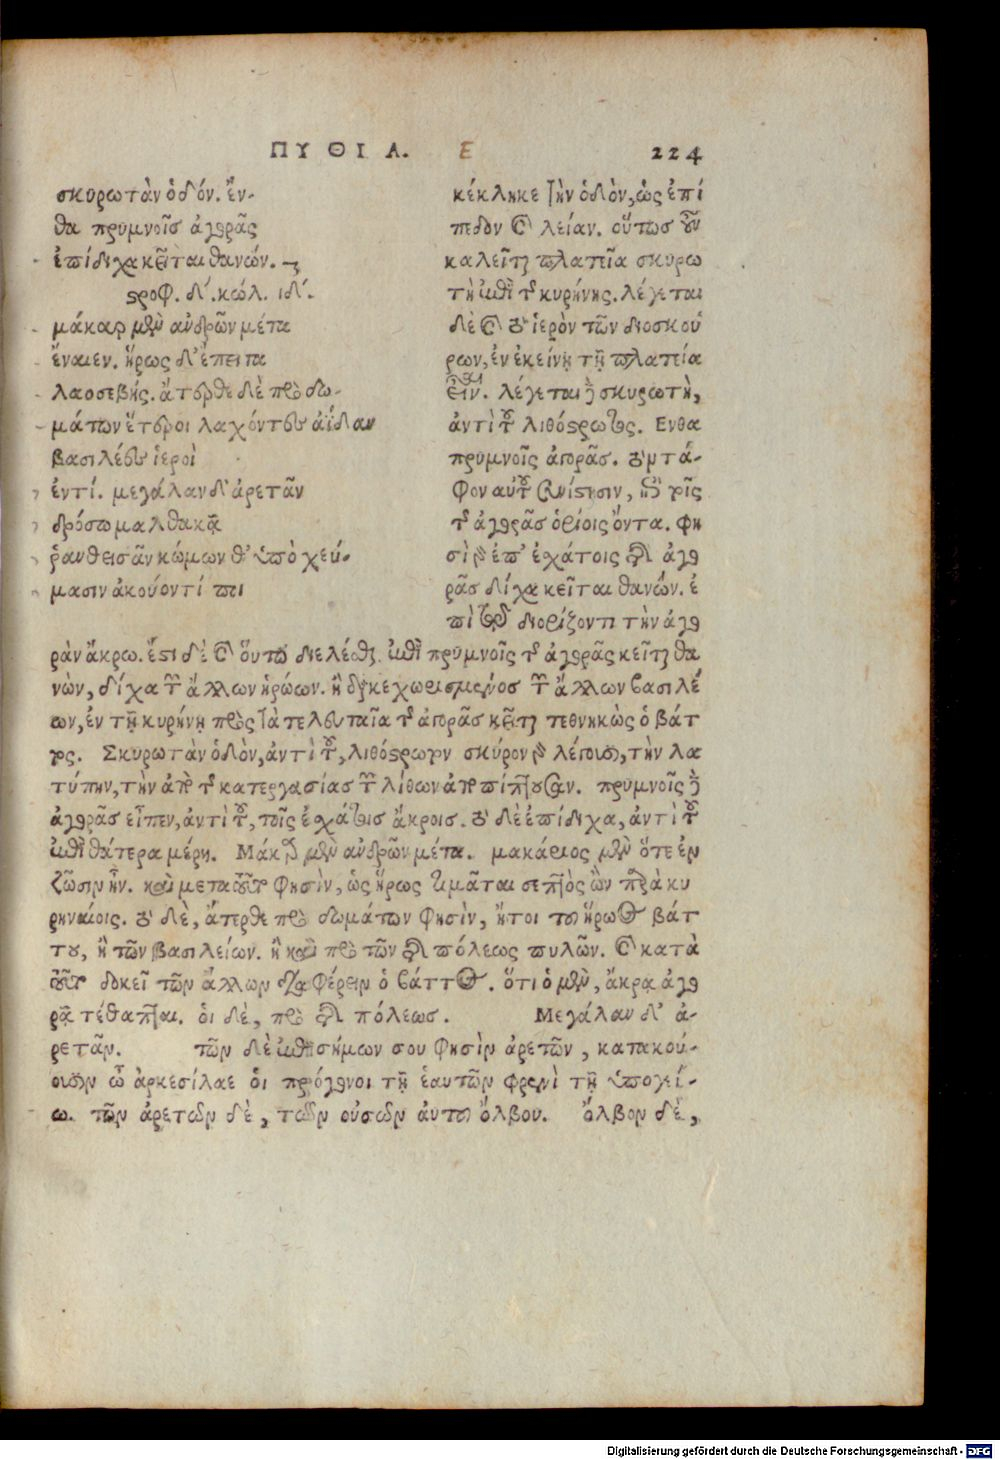 ΠΥΘΙΑ. Ε 224
σκυρωτὰν ὁδόν. ἔν-
θα πρυμνοῖς ἀγορᾶς
ἐπίδιχα κεῖται θανών.
ςροφ. δ´. κώλ. ιδ´.
μάκαρ μὲν ἀνδρῶν μέτα
ἔναιεν. ἥρως δ' ἔπειτα
λαοσεβής. ἄτερθε δὲ πρὸ δω-
μάτων ἕτεροι λαχόντες ἀΐδαν
βασιλέες ἱεροὶ
ἐντί. μεγάλαν δ' ἀρετὰν
δρόσῳ μαλθακᾷ
ῥανθεισᾶν κώμων θ' ὑπὸ χεύ-
μασιν ἀκούοντί τοι
κέκληκε τὴν ὁδὸν, ὡς ἐπί
πεδον καὶ λείαν. οὕτως οὖν
καλεῖται πλατεῖα σκυρω
τὴ ἐπὶ τῆς κυρήνης. λέγεται
δὲ καὶ τὸ ἱερὸν τῶν διοσκού
ρων, ἐν ἐκείνῃ τῇ πλατεία
εἶναι. λέγεται δὲ σκυρωτὴ,
ἀντὶ τοῦ λιθόςρωτος. Ενθα
πρυμνοῖς ἀγορᾶς. τὸν τά-
φον αὐτοῦ συνίςησιν, ἐν τοῖς
τῆς ἀγορᾶς ὁρίοις ὄντα. φη
σὶ γὰρ ἐπ' ἐσχάτοις τῆς ἀγο
ρᾶς δίχα κεῖται θανών. ἐ
πὶ τῷ διορίζοντι τὴν ἀγο
ρὰν ἄκρῳ. ἔςι δὲ καὶ οὕτω διελέσθαι. ἐπὶ πρυμνοῖς τῆς ἀγορᾶς κεῖται θα
νὼν, δίχα τῶν ἄλλων ἡρώων. ἢ οὐ κεχωρισμένος τῶν ἄλλων βασιλέ
ων, ἐν τῇ κυρήνῃ πρὸς τὰ τελευταῖα τῆς ἀγορᾶς κεῖται τεθνηκὼς ὁ βάτ
τος. Σκυρωτὰν ὁδὸν, ἀντὶ τοῦ, λιθόςρωτον σκύρον γὰρ λέγουσι, τὴν λα
τύπην, τὴν ἀπὸ τῆς κατεργασίας τῶν λίθων ἀποπίπτουσαν. πρυμνοῖς δὲ
ἀγορᾶς εἶπεν, ἀντὶ τοῦ, τοῖς ἐσχάτοις ἄκροις. τὸ δὲ ἐπίδιχα, ἀντὶ τοῦ
ἐπὶ θάτερα μέρη. Μάκαρ μὲν ἀνδρῶν μέτα. μακάριος μὲν ὅτε ἐν
ζῶσιν ἦν. καὶ μετὰ ταῦτα φησὶν, ὡς ἥρως τιμᾶται σεπτὸς ὢν παρὰ κυ
ρηναίοις. τὸ δὲ, ἄτερθε πρὸ δωμάτων φησὶν, ἤτοι τοῦ ἥρωος βάτ
του, ἢ τῶν βασιλείων. ἢ καὶ πρὸ τῶν τῆς πόλεως πυλῶν. καὶ κατὰ
τοῦτο δοκεῖ τῶν ἄλλων διαφέρειν ὁ βάττος. ὅτι ὁ μὲν, ἄκρᾳ ἀγο
ρᾷ τέθαπται. οἱ δὲ, πρὸ τῆς πόλεως. Μεγάλαν δ' ἀ-
ρετᾶν. τῶν δὲ ἐπισήμων σου φησὶν ἀρετῶν, κατακού-
ουσιν ὦ ἀρκεσίλαε οἱ πρόγονοι τῇ ἑαυτῶν φρενὶ τῇ ὑπογεί-
ῳ. τῶν ἀρετῶν δὲ, τῶν οὐσῶν αὐτῷ ὄλβου. ὄλβον δὲ,
Digitalisierung gefördert durch die Deutsche Forschungsgemeinschaft - DFG